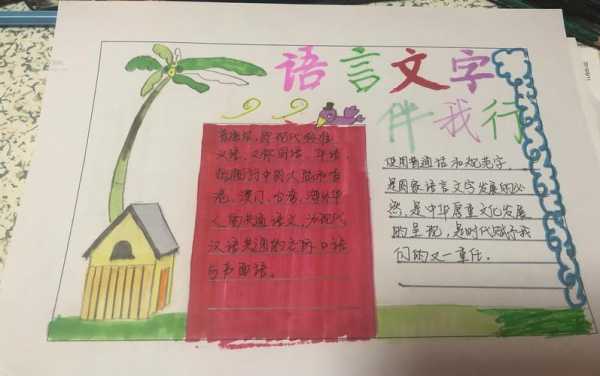 语言文字
伴我行
普通话，即现代标准
汉语，又称国语、华语，
指通行于中国大陆和香
港、澳门、台湾、海外华
人的共通语文，为现代
汉语共通的交际口语
与书面语。
使用普通话和规范字
是国家语言文字发展的必
然，是中华厚重文化发展
的呈现，是时代赋予我
们的又一重任。